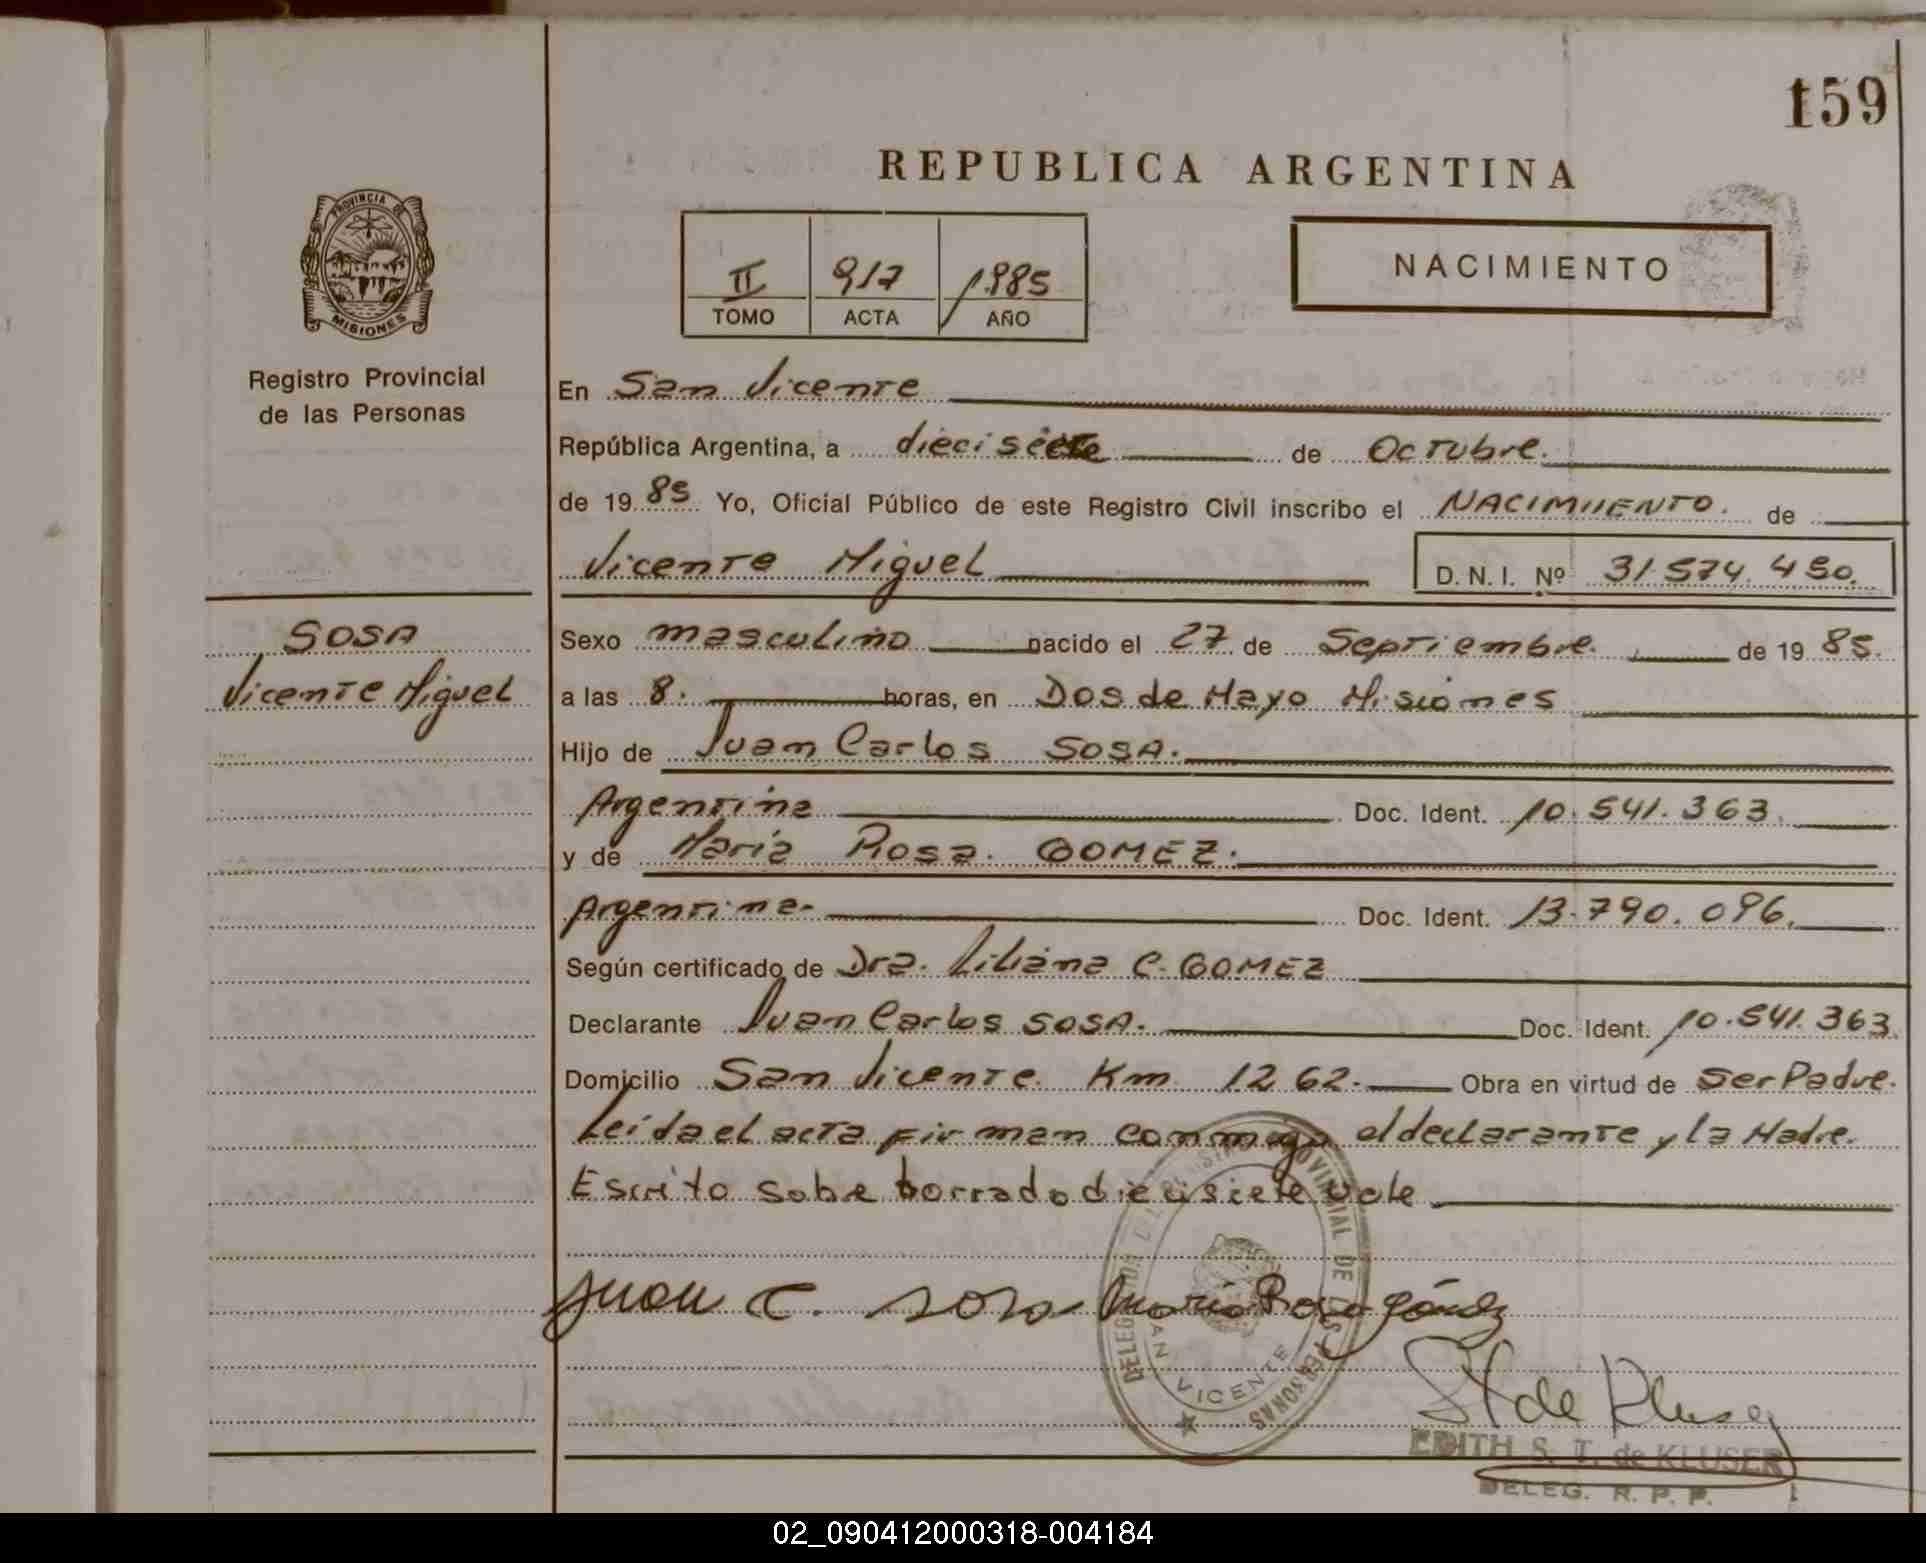 159
REPUBLICA ARGENTINA
PROVINCIA DE
MISIONES
II 917 1985
TOMO ACTA AÑO
NACIMIENTO
Registro Provincial
de las Personas
En San Vicente
República Argentina, a diecisiete de Octubre.
de 1985 Yo, Oficial Público de este Registro Civil inscribo el NACIMIIENTO. de
Vicente Miguel D. N. I. Nº 31.574.450.
SOSA
Vicente Miguel
Sexo masculino nacido el 27 de Septiembre. de 1985.
a las 8. horas, en Dos de Mayo Misiones
Hijo de Juan Carlos SOSA.
Argentina Doc. Ident. 10.541.363.
y de Maria Rosa. GOMEZ.
Argentina. Doc. Ident. 13.790.096.
Según certificado de Dra. Liliana C. GOMEZ
Declarante Juan Carlos SOSA. Doc. Ident. 10.541.363.
Domicilio San Vicente. Km 1262. Obra en virtud de Ser Padre.
Leída el acta firman conmigo el declarante y la Madre.
Escrito sobre borrado diecisiete vale
Juan C. Sosa Maria Rosa Gómez
DELEGACION DEL REGISTRO PROVINCIAL DE LAS PERSONAS
SAN VICENTE
S T de Kluser
EDITH S. T. de KLUSER
DELEG. R. P. P.
02_090412000318-004184